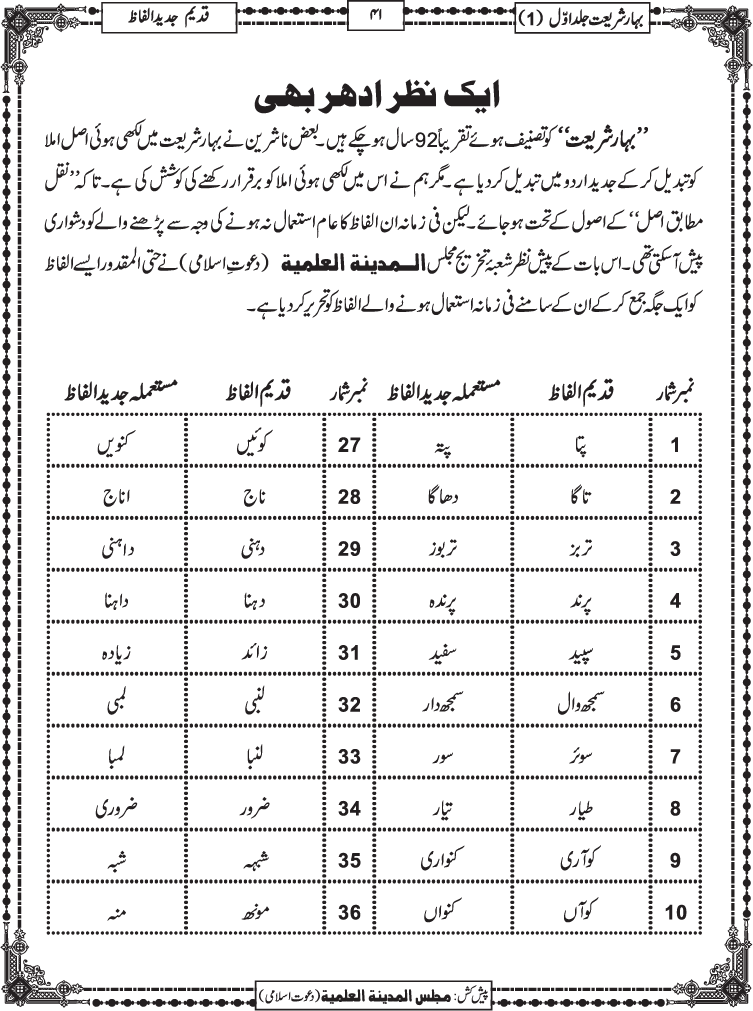 بہارِ شریعت جلد اوّل (1)
۴۱
قدیم جدید الفاظ
ایک نظر ادھر بھی
’’بہارِ شریعت‘‘ کو تصنیف ہوئے تقریباً 92 سال ہو چکے ہیں۔ بعض ناشرین نے بہارِ شریعت میں لکھی ہوئی اصل املا
کو تبدیل کر کے جدید اردو میں تبدیل کر دیا ہے۔ مگر ہم نے اس میں لکھی ہوئی املا کو برقرار رکھنے کی کوشش کی ہے۔ تاکہ ’’نقل
مطابق اصل‘‘ کے اصول کے تحت ہو جائے۔ لیکن فی زمانہ ان الفاظ کا عام استعمال نہ ہونے کی وجہ سے پڑھنے والے کو دشواری
پیش آسکتی تھی۔ اس بات کے پیش نظر شعبۂ تخریج مجلس المدینۃ العلمیۃ (دعوتِ اسلامی) نے حتی المقدور ایسے الفاظ
کو ایک جگہ جمع کر کے ان کے سامنے فی زمانہ استعمال ہونے والے الفاظ کو تحریر کر دیا ہے۔
نمبر شمار قدیم الفاظ مستعملہ جدید الفاظ نمبر شمار قدیم الفاظ مستعملہ جدید الفاظ
1 پتا پتہ 27 کوئیں کنویں
2 تاگا دھاگا 28 ناج اناج
3 تربز تربوز 29 دہنی داہنی
4 پرند پرندہ 30 دہنا داہنا
5 سپید سفید 31 زائد زیادہ
6 سمجھ وال سمجھ دار 32 لنبی لمبی
7 سوئر سور 33 لنبا لمبا
8 طیار تیّار 34 ضرور ضروری
9 کوآری کنواری 35 شبہہ شبہ
10 کوآں کنواں 36 مونھ منہ
پیش کش: مجلس المدینۃ العلمیۃ (دعوتِ اسلامی)